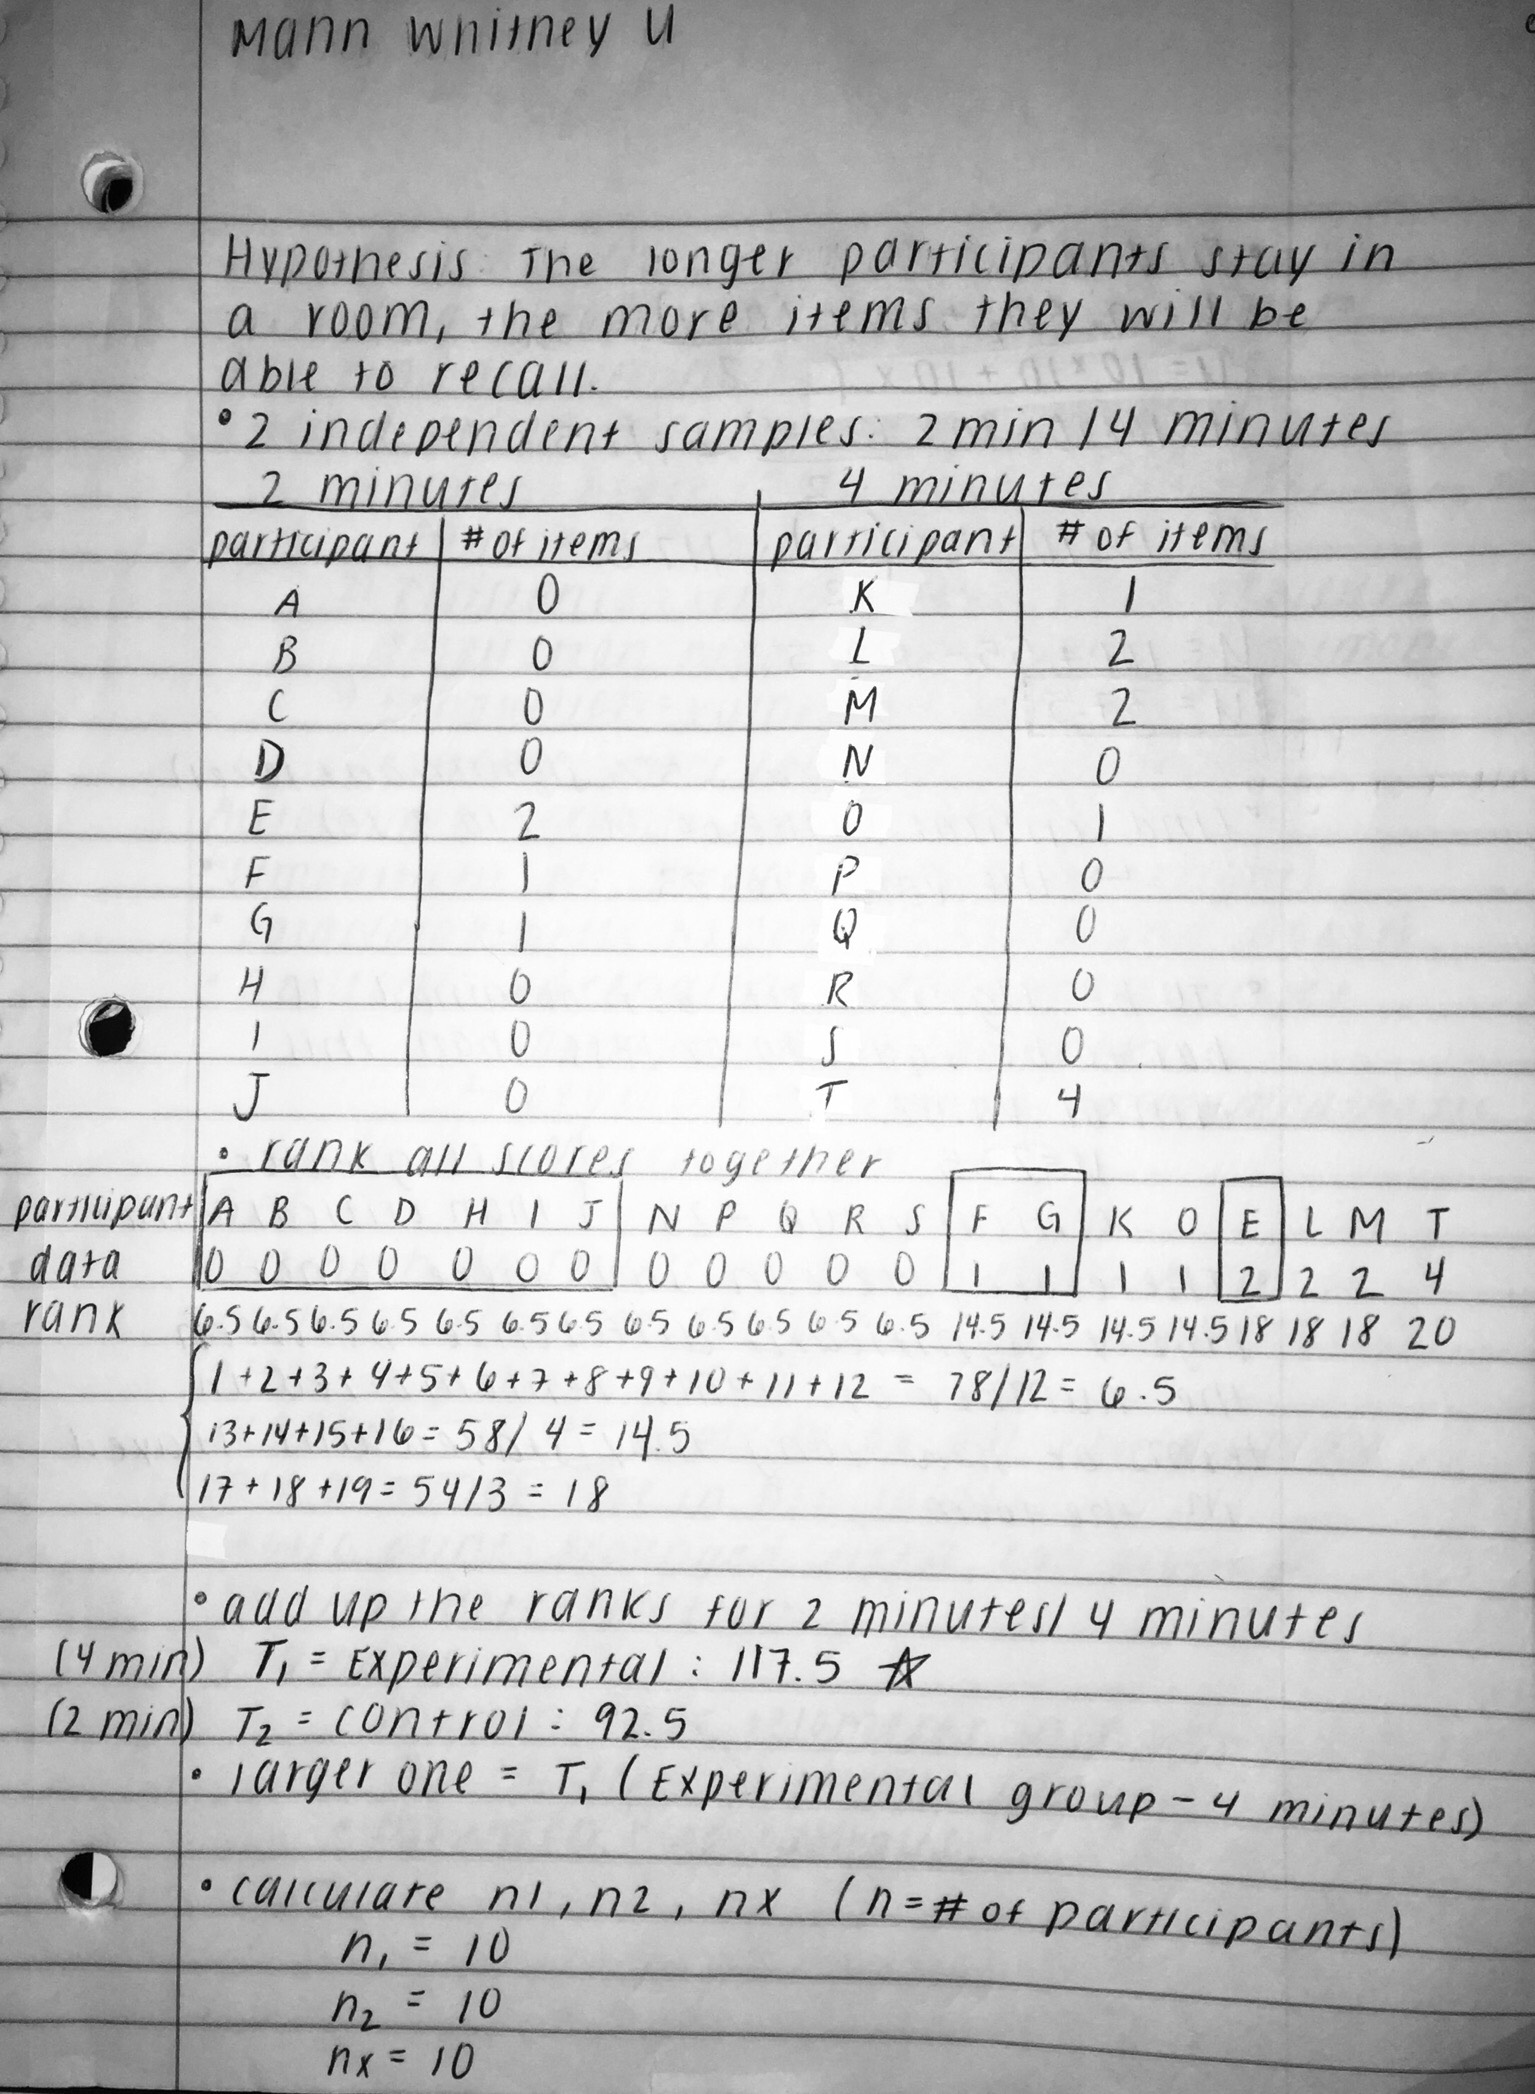 Mann Whitney U
Hypothesis: The longer participants stay in
a room, the more items they will be
able to recall.
• 2 independent samples: 2 min / 4 minutes
2 minutes 4 minutes
participant # of items participant # of items
A 0 K 1
B 0 L 2
C 0 M 2
D 0 N 0
E 2 O 1
F 1 P 0
G 1 Q 0
H 0 R 0
I 0 S 0
J 0 T 4
• rank all scores together
participant A B C D H I J N P Q R S F G K O E L M T
data 0 0 0 0 0 0 0 0 0 0 0 0 1 1 1 1 2 2 2 4
rank 6.5 6.5 6.5 6.5 6.5 6.5 6.5 6.5 6.5 6.5 6.5 6.5 14.5 14.5 14.5 14.5 18 18 18 20
1+2+3+4+5+6+7+8+9+10+11+12 = 78/12 = 6.5
13+14+15+16 = 58/4 = 14.5
17+18+19 = 54/3 = 18
• add up the ranks for 2 minutes/ 4 minutes
(4 min) T₁ = Experimental : 117.5 ☆
(2 min) T₂ = control : 92.5
• larger one = T₁ (Experimental group - 4 minutes)
• calculate n1, n2, nx (n = # of participants)
n₁ = 10
n₂ = 10
nx = 10